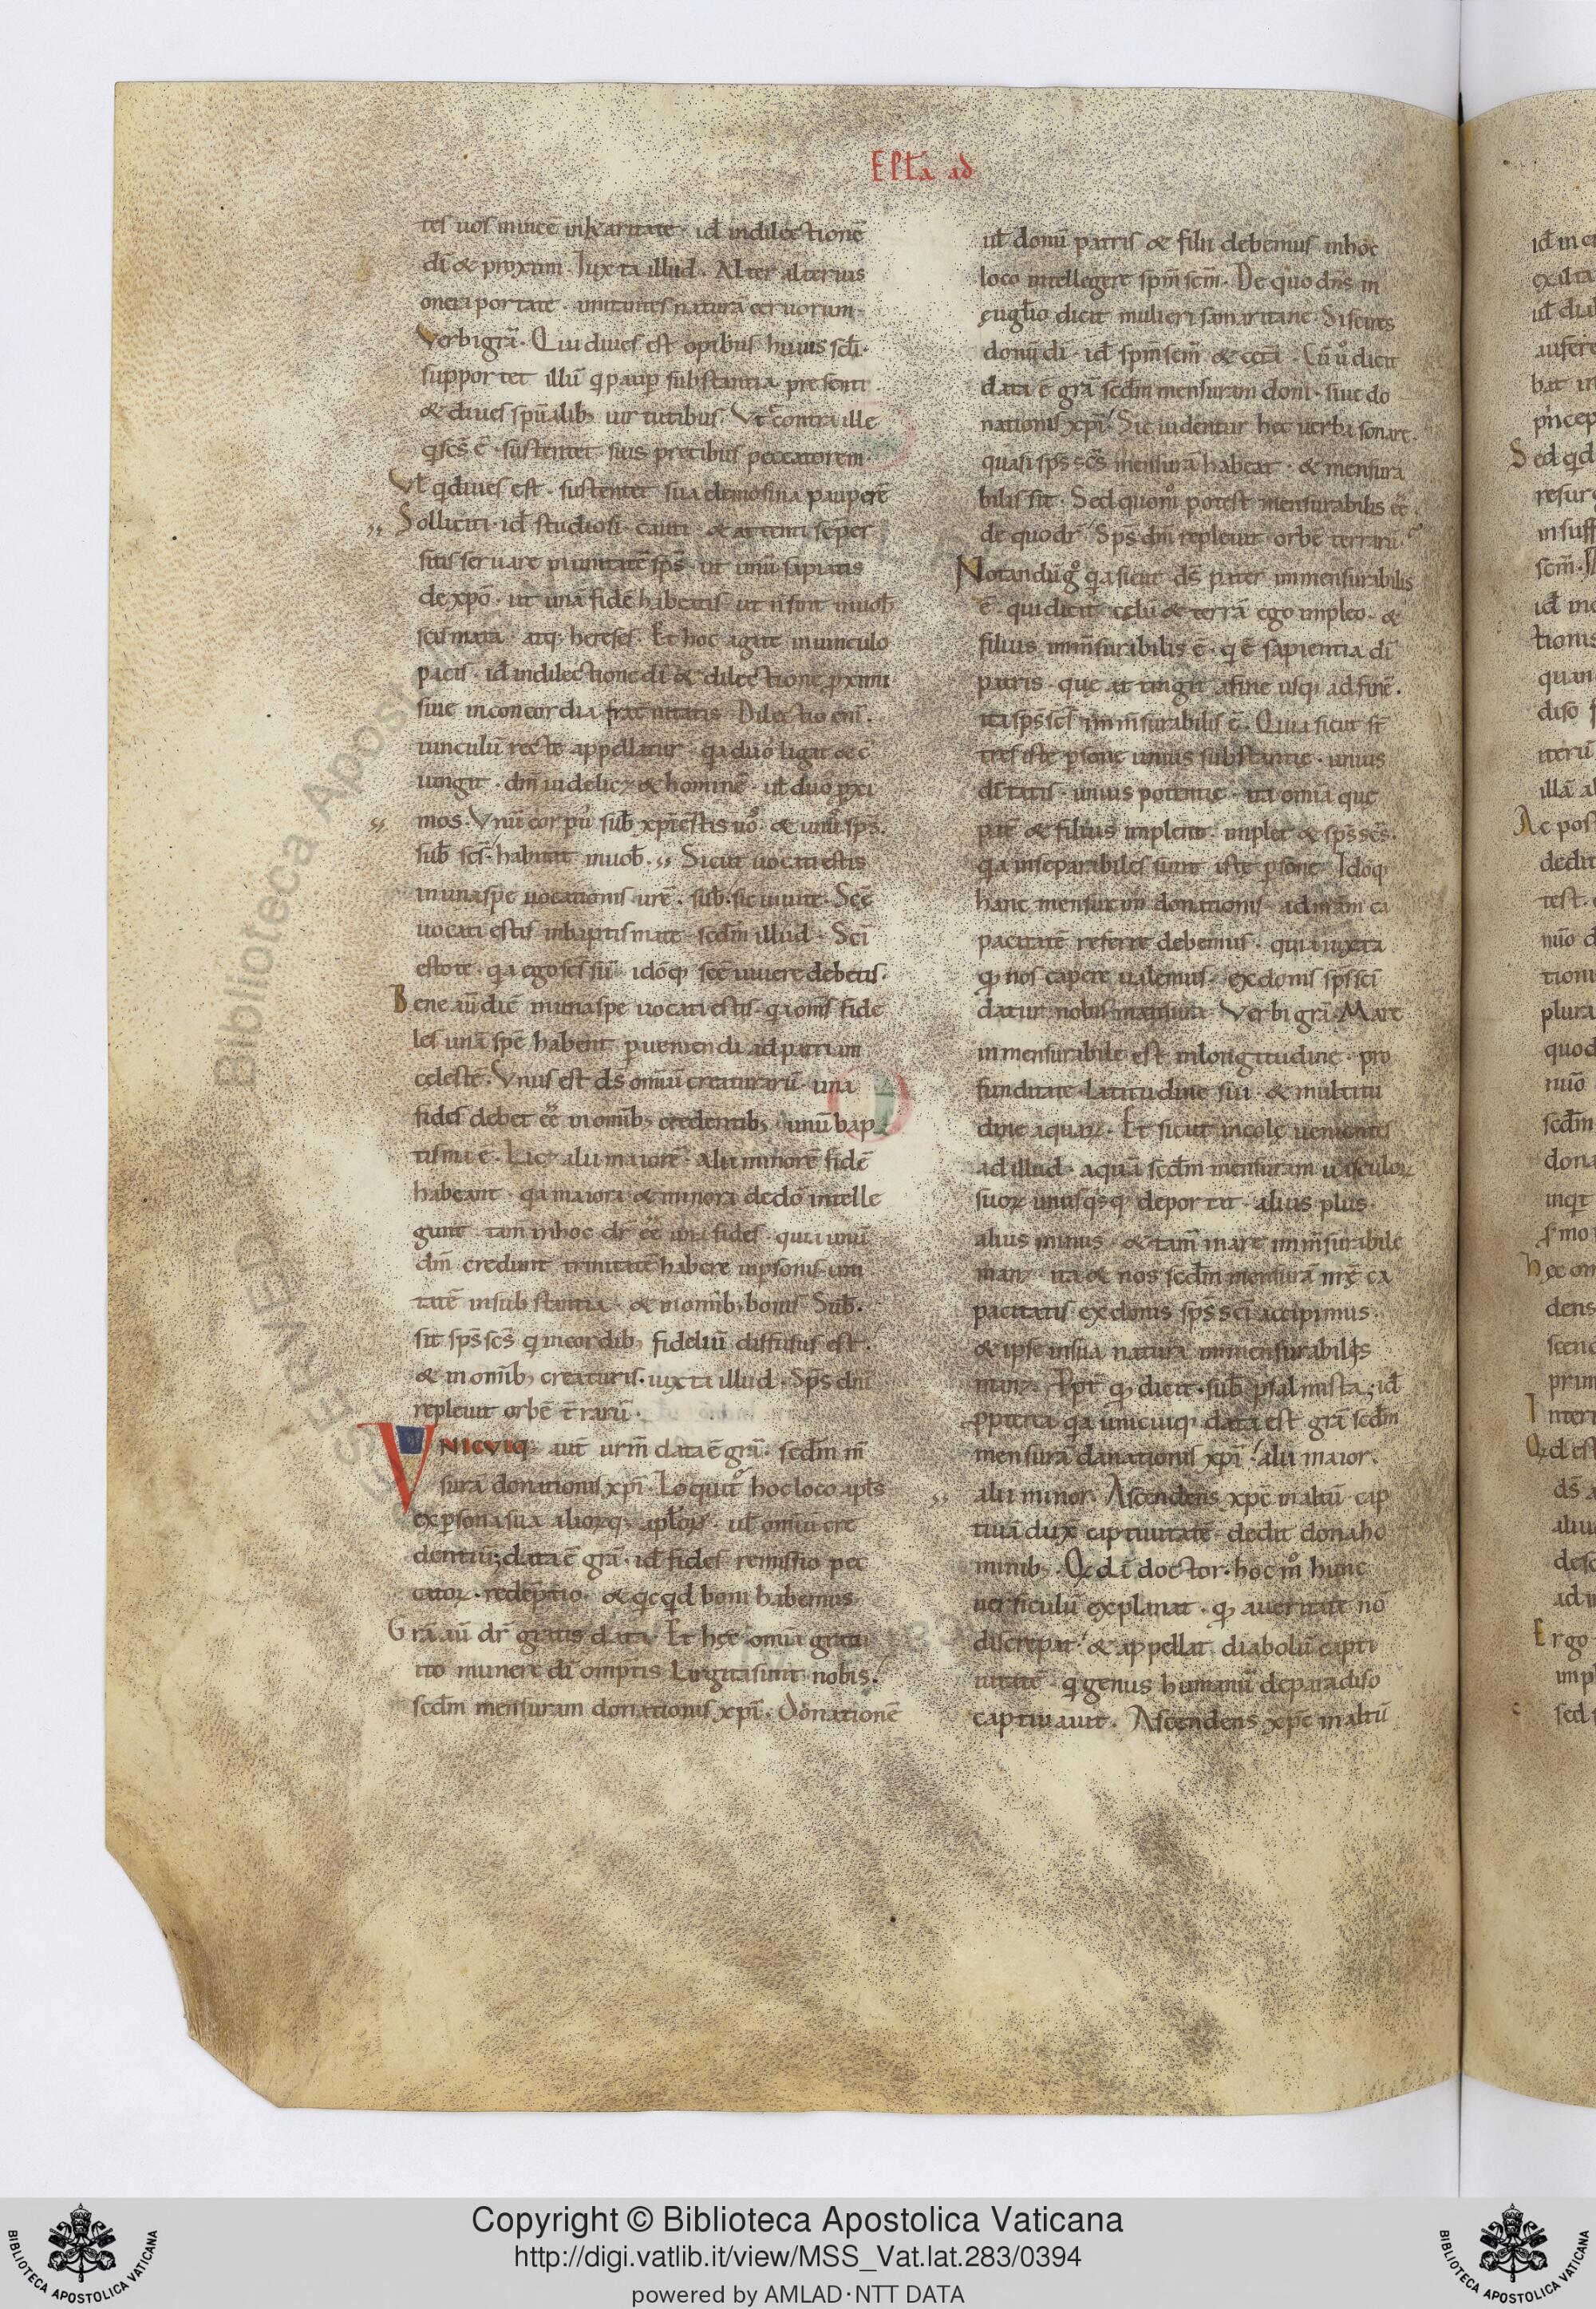 Epła ad
tes uos inuicē inkaritate · id̄ indilectionē
dī & proximi · Iuxta illud · Alter alterius
onera portate · imitantes naturā ceruorum ·
Verbigrā · Qui diues est opibus huius sc̄li ·
supportet illū q̇ paup̄ substantia presenti
& diues spūalib; uirtutibus · Vt̄ econtra ille
q̇ sc̄s ē · sustentet suis precibus peccatorem
Vł q̇ diues est · sustentet sua elemosina pauperē
Solliciti · id̄ studiosi · cauti · & attenti sēper
sitis seruare inunitatē sp̄s · ut unū sapiatis
dexp̄o · ut unā fidē habeatis · ut ñ sint inuob̄
scismata · atq; hereses · Et hoc agite inuinculo
pacis · id̄ indilectione dī & dilectione p̄ximi
siue inconcordia fraternitatis · Dilectio enī
uinculū recte appellatur · q̇a duo ligat & c̄
iungit · dm̄ uidelic; & hominē · ut duo p̄xi
mos · Vnū corpus sub̄ xp̄i estis uo᷒ · & unus sp̄s ·
sub̄ sc̄s · habitat inuob̄ · Sicut uocati estis
inunaspe uocationis urē · sub̄ · sic uiuite · Scē
uocati estis inbaptismate · scd̄m illud · Scī
estote · q̇a ego sc̄s sū · idōq; scē uiuere debetis ·
Bene aū dic̄ inunaspe uocati estis · q̇a om̄s fide
les unā spē habent p̄ueniendi ad patriam
celestē · Vnus est ds̄ omiū creaturarū · una
fides debet eē inomib; credentib; · unū bap
tismū ē · Lic; alii maiorē alii minorē fidē
habeant · q̇a maiora & minora dedō intelle
gunt · tam̄ inhoc dr̄ eē una fides · quia unū
dm̄ credunt trinitatē habere inp̄sonis · uni
tatē insubstantia · & inomib; bonis · Sub̄ ·
sit sp̄s sc̄s q̇ incordib; fideliū diffusus est ·
& inomib; creaturis · iuxta illud · Sp̄s dn̄i
repleuit orbē t̄rarū ·
VNICVIQ; aut̄ urm̄ data ē grā · scd̄m m̄
surā donationis xp̄i · Loquit᷒ hoc loco apł̄s
exp̄sona sua alior̄q; apł̄or̄ · uł omiū cre
dentiū; data ē grā · id̄ fides remissio pec
cator̄ · redēptio · & q̇cq̇d boni habemus
Grā aū dr̄ gratis data · Et hęc omia gratu
ito munere dī omp̄tis Largita sunt nobis ·
scd̄m mensuram donationis xp̄i · Donationē
uł donū patris & filii debemus inhoc
loco intellegere sp̄m sc̄m · De quo dn̄s in
ęuglio dicit mulieri samaritane · Si scires
donū dī · id̄ sp̄m sc̄m & cetā · Cū ū dicit
data ē grā scd̄m mensuram doni · siue do
nationis xp̄i · Sic uidentur hec uerba sonare ·
quasi sp̄s sc̄s mensurā habeat · & mensura
bilis sit · Sed quom̄ potest mensurabilis eē ·
de quo dr̄ · Sp̄s dn̄i repleuit orbē terrarū ·
Notandū g᷒ q̇a sicut ds̄ pater immensurabilis
ē · qui dicit celū & terrā ego impleo · &
filius imm̄surabilis ē · q̇ ē sapientia dī
patris · quę attingit afine usq; adfinē ·
ita sp̄s sc̄s imm̄surabilis ē · Quia sicut st̄
tres iste p̄sonę unius substantię · unius
dītatis · unius potentię · ita omia quę
pat̄ & filius implent · implet & sp̄s sc̄s ·
q̇a inseparabiles sunt iste p̄sonę · Idōq;
hanc mensuram donationis adnr̄am ca
pacitatē referre debemus · quia iuxta
q̇ nos capere ualemus · exdonis sp̄s scī
datur nobis mensura · Verbi grā · Mare
inmensurabile est inlongitudine · pro
funditate · Latitudine sui · & multitu
dine aquar̄ · Et sicut incolę uenientes
adillud · aquā scd̄m mensuram uasculor̄
suor̄ unusq̇sq; deportat · alius plus ·
alius minus · & tam̄ mare imm̄surabile
man; · ita & nos scd̄m mensurā nrę̄ ca
pacitatis exdonis sp̄s scī accipimus ·
& ipse insua natura immensurabilis
man; · Ppt̄ q̇ dicit · sub̄ psalmista; id̄
pp̄terea q̇a unicuiq; data est grā scd̄m
mensurā danationis xp̄i · alii maior ·
alii minor · Ascendens xp̄c inaltū cap
tiuā dux̄ captiuitatē dedit dona ho
minib; · Q̇d̄ā doctor · hoc m᷒ hunc
uersiculū explanat · q; aueritate nō
discrepat · & appellat diabolū capti
uitatē · q̇ genus humanū deparadiso
captiuauit · Ascendens xp̄c inaltū
Copyright © Biblioteca Apostolica Vaticana
http://digi.vatlib.it/view/MSS_Vat.lat.283/0394
powered by AMLAD·NTT DATA